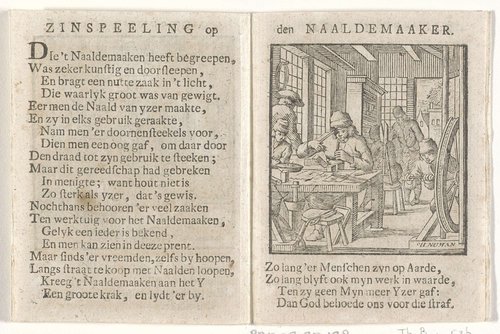 ZINSPEELING op
Die 't Naaldemaaken heeft begreepen,
Was zeker kunstig en doorsleepen,
En bragt een nutte zaak in 't licht,
Die waarlyk groot was van gewigt.
Eer men de Naald van yzer maakte,
En zy in elks gebruik geraakte,
Nam men 'er doornensteekels voor,
Dien men een oog gaf, om daar door
Den draad tot zyn gebruik te steeken;
Maar dit gereedschap had gebreken
In menigte; want hout niet is
Zo sterk als yzer, dat 's gewis.
Nochthans behooren 'er veel zaaken
Ten werktuig voor het Naaldemaaken,
Gelyk een ieder is bekend,
En men kan zien in deeze prent.
Maar sinds 'er vreemden, zelfs by hoopen,
Langs straat te koop met Naalden loopen,
Kreeg 't Naaldemaaken aan het Y
Een groote krak, en lydt 'er by.
den NAALDEMAAKER.
H. NUMAN
Zo lang 'er Menschen zyn op Aarde,
Zo lang blyft ook myn werk in waarde,
Ten zy geen Myn meer Yzer gaf:
Dan God behoede ons voor die straf.